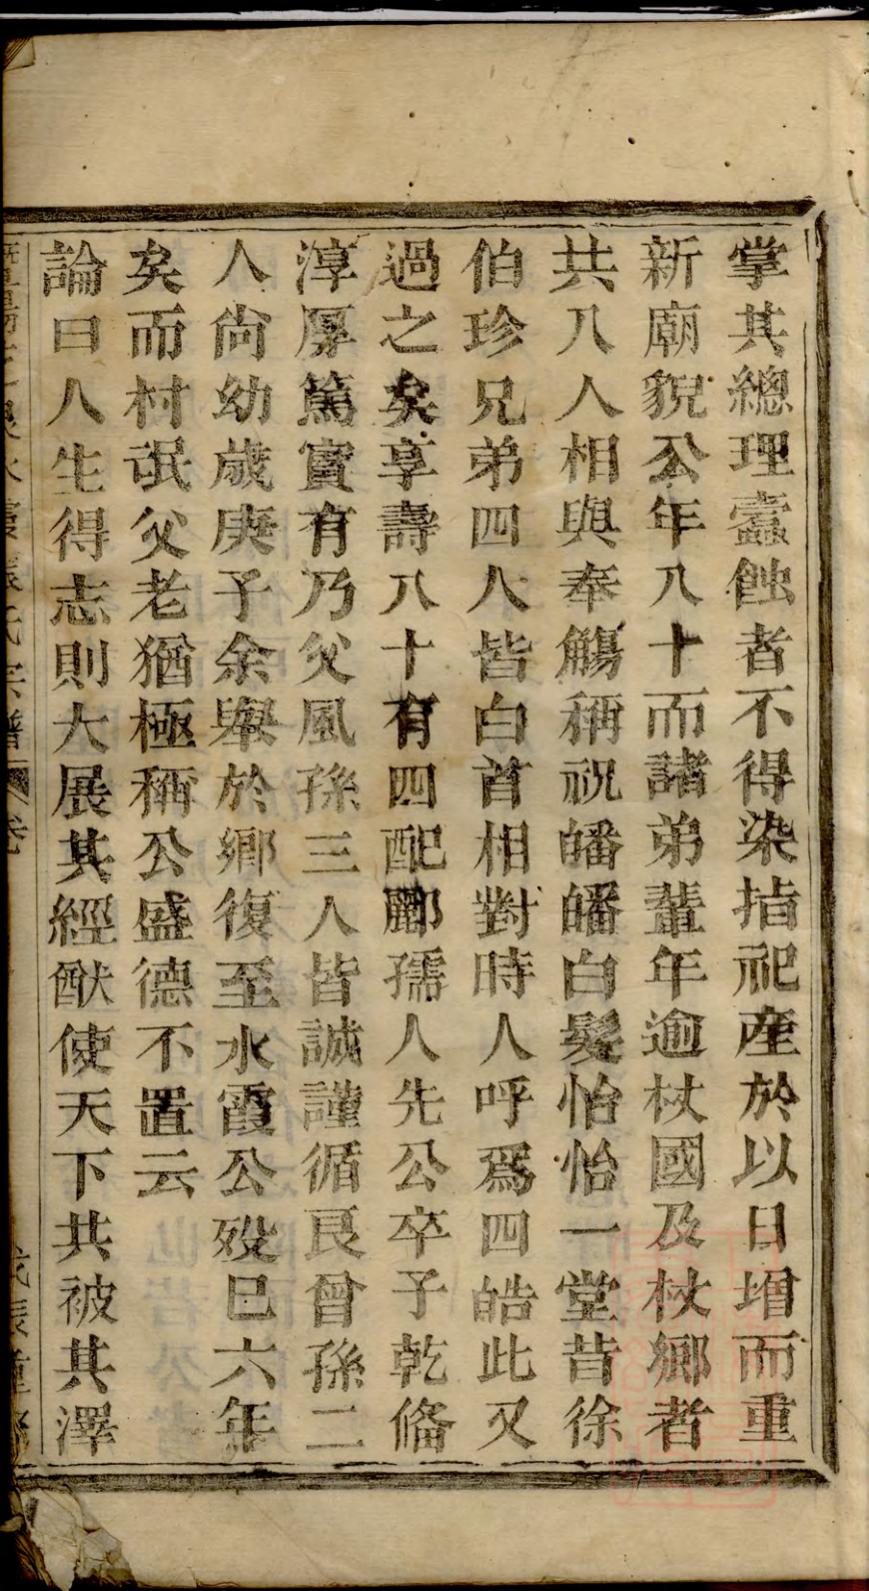 掌其總理蠧蝕者不得染指祀產於以日增而重
新廟貌公年八十而諸弟輩年逾杖國及杖鄉者
共八人相與奉觴稱祝皤皤白髮怡怡一堂昔徐
伯珍兄弟四人皆白首相對時人呼爲四皓此又
過之矣享壽八十有四配酈孺人先公卒子乾脩
淳厚篤實有乃父風孫三人皆誠謹循良曾孫二
人尙幼歲庚子余舉於鄉復至水霞公歿已六年
矣而村氓父老猶極稱公盛德不置云
論曰人生得志則大展其經猷使天下共被其澤